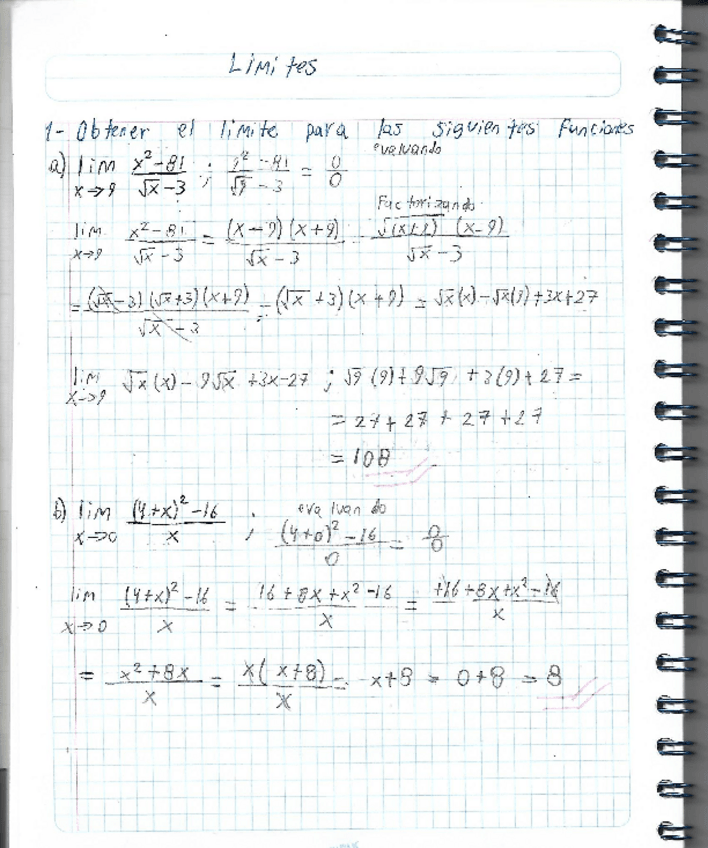 Limites
1- Obtener el limite para las siguientes funciones
a) lim x→9 (x²-81)/(√x-3) ; (9²-81)/(√9-3) = 0/0 evaluando
Factorizando
lim x→9 (x²-81)/(√x-3) = (x-9)(x+9)/(√x-3) (x-9)/(√x-3)
= (√x-3)(√x+3)(x+9)/(√x-3) = (√x+3)(x+9) = √x(x)-√x(9)+3x+27
lim x→9 √x(x)-9√x+3x-27 ; √9(9)+9√9+3(9)+27=
= 27+27+27+27
= 108
b) lim x→0 ((4+x)²-16)/x ; evaluando ((4+0)²-16)/0 = 0/0
lim x→0 ((4+x)²-16)/x = (16+8x+x²-16)/x = (+16+8x+x²-16)/x
= (x²+8x)/x = x(x+8)/x = x+8 = 0+8 = 8